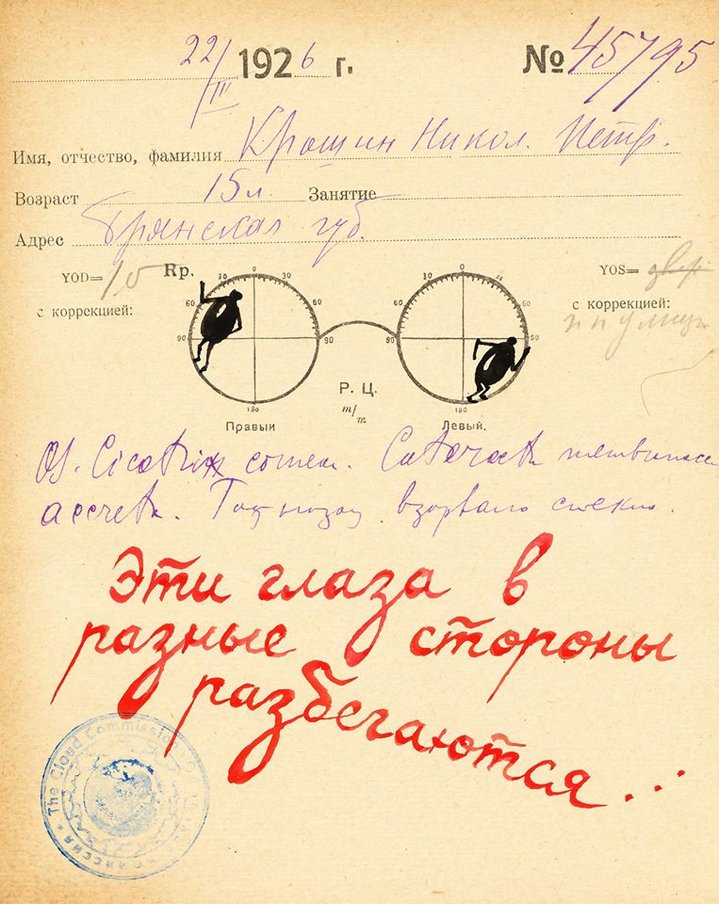 22/III 1926 г. № 45795
Имя, отчество, фамилия Крошин Никол. Петр.
Возраст 15 л. Занятие
Адрес Брянская губ.
YOD= 1,0 Rp. YOS=
с коррекцией: с коррекцией:
30 0 30 30 0 30
60 60 60 60
90 90 90 90
Р. Ц.
m/m
180 180
Правый Левый.
OS. Cicatrix corneae. Cataracta
accreta. Год назад взорвало стекло.
Эти глаза в
разные стороны
разбегаются...
The Cloud Commission